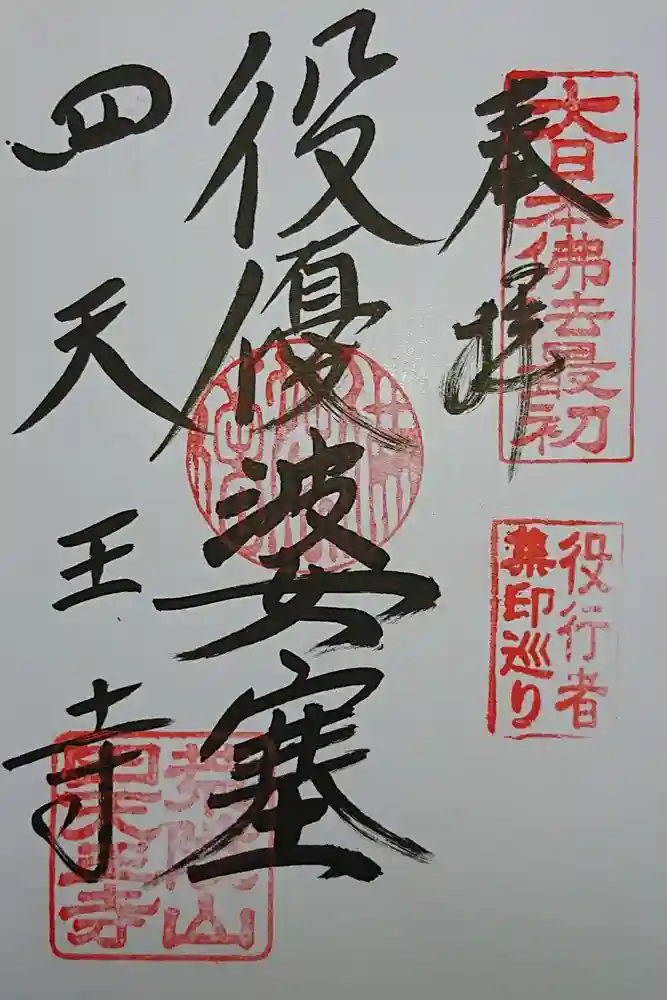 奉拝
大日本佛法最初
役行者
集印巡り
役優婆塞
四天王寺
荒陵山
四天王寺